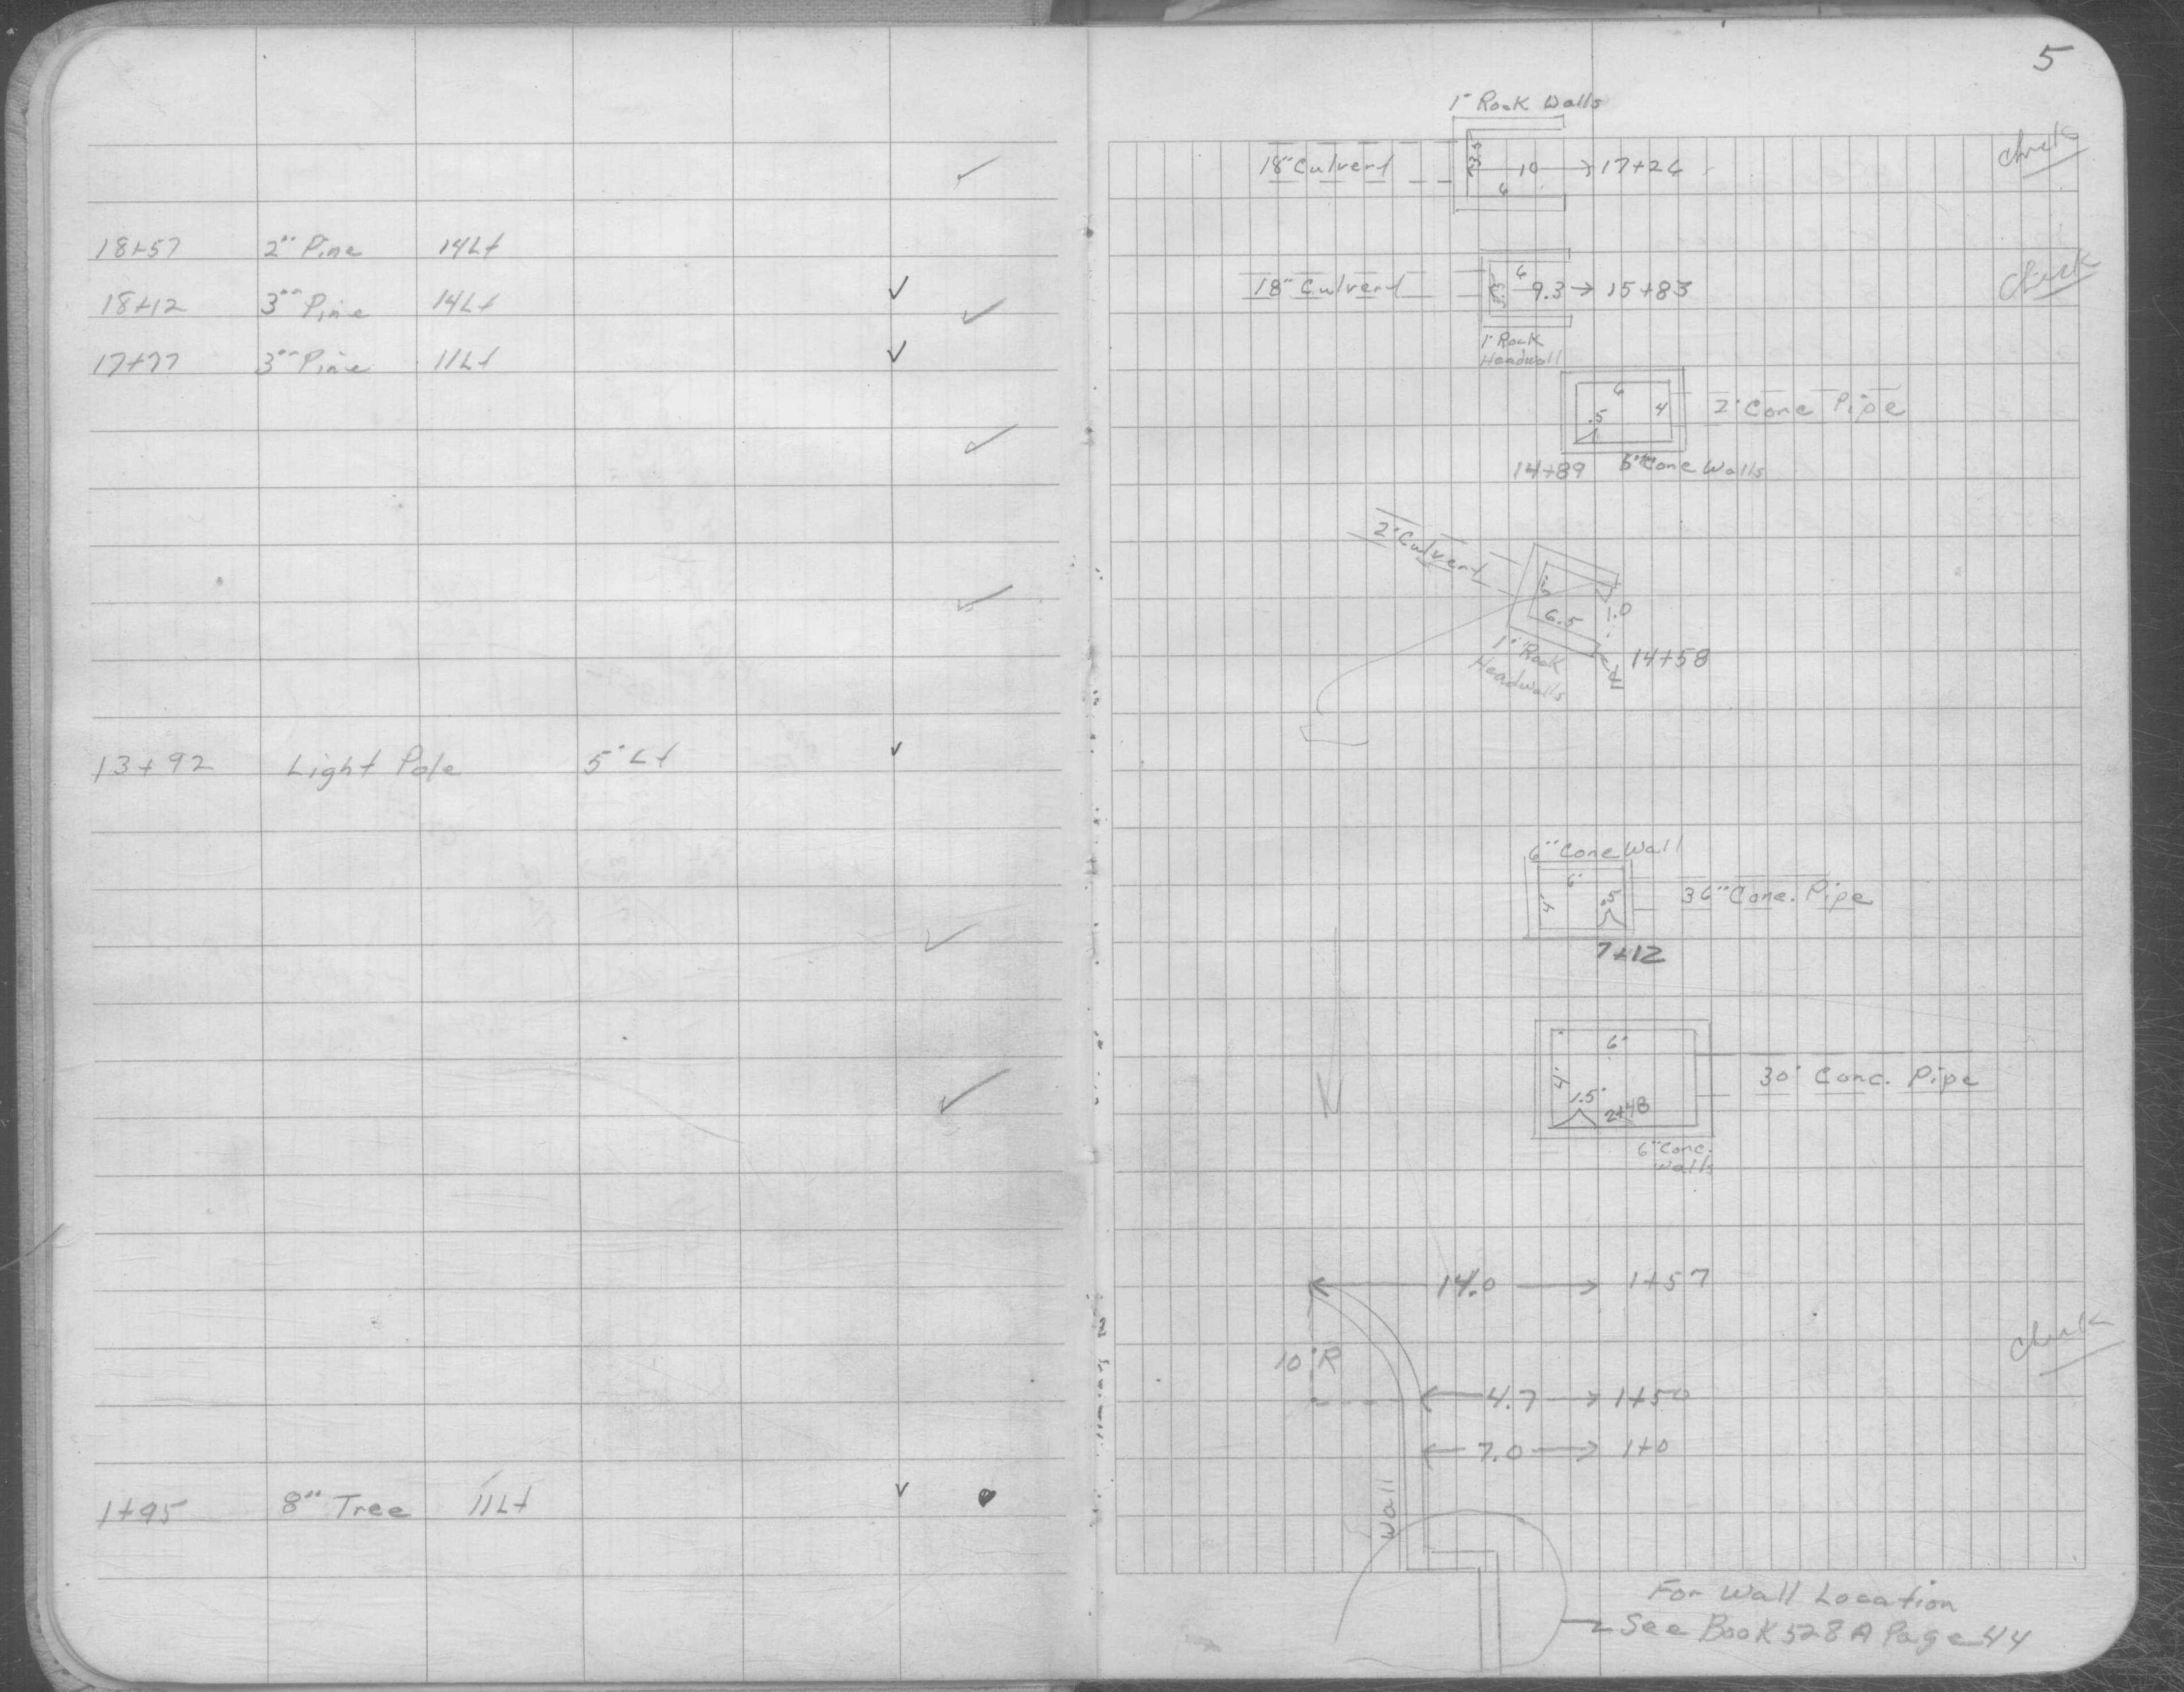 5
18+57 2" Pine 14Lt
18+12 3" Pine 14Lt
17+77 3" Pine 11Lt
13+92 Light Pole 5' Lt
1+95 8" Tree 11Lt
1' Rock Walls
18" Culvert 3.5 10 17+26
6
Check
6
18" Culvert 9.3 15+83
Check
1' Rock
Headwall
6
.5 4 2' Conc Pipe
14+89 Conc Walls
2' Culvert
6.5 1.0
1' Rock
Headwalls
14+58
6" Conc Wall
6'
4' .5 36" Conc. Pipe
7+12
6'
4' 30" Conc. Pipe
1.5' 2+48
6" Conc.
Walls
14.0 1+57
Check
10' R
4.7 1+50
7.0 1+0
Wall
For Wall Location
See Book 528 A Page 44